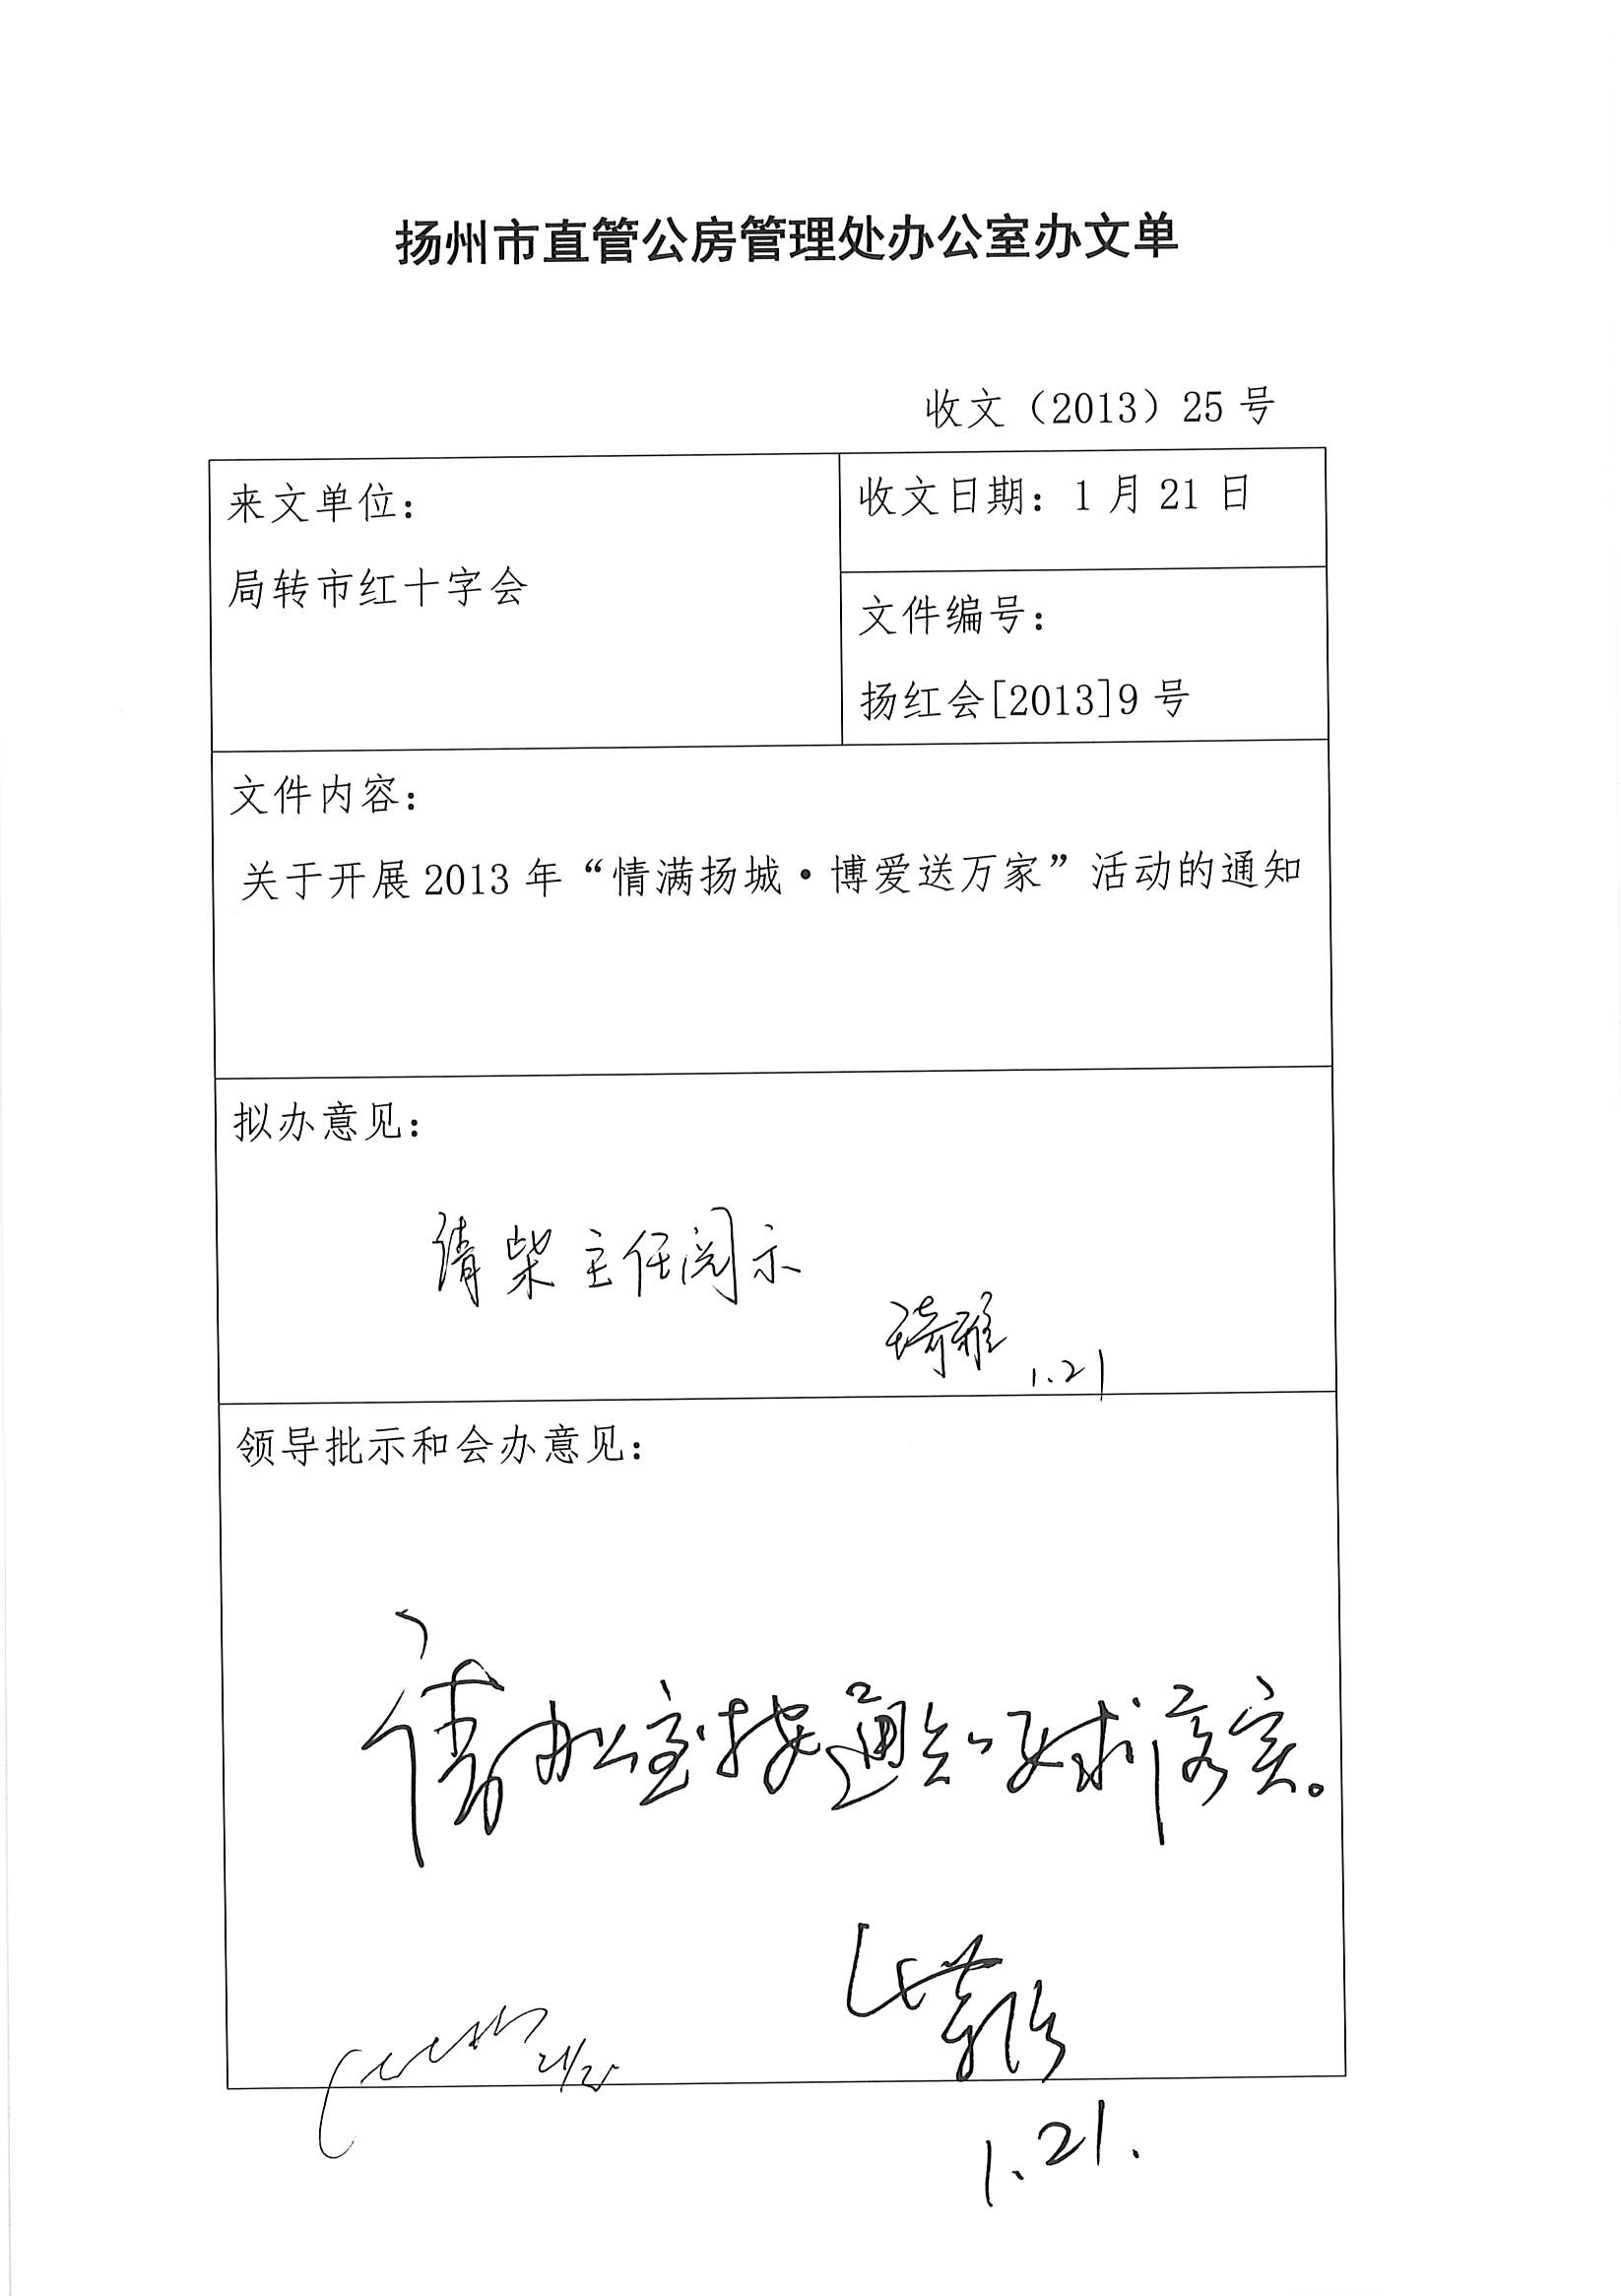 扬州市直管公房管理处办公室办文单
收文（2013）25 号
来文单位：
局转市红十字会
收文日期：1 月 21 日
文件编号：
扬红会[2013]9 号
文件内容：
关于开展 2013 年“情满扬城·博爱送万家”活动的通知
拟办意见：
请柴主任阅示
琦雅 1.21
领导批示和会办意见：
请办公室按通知要求落实。
1.21.